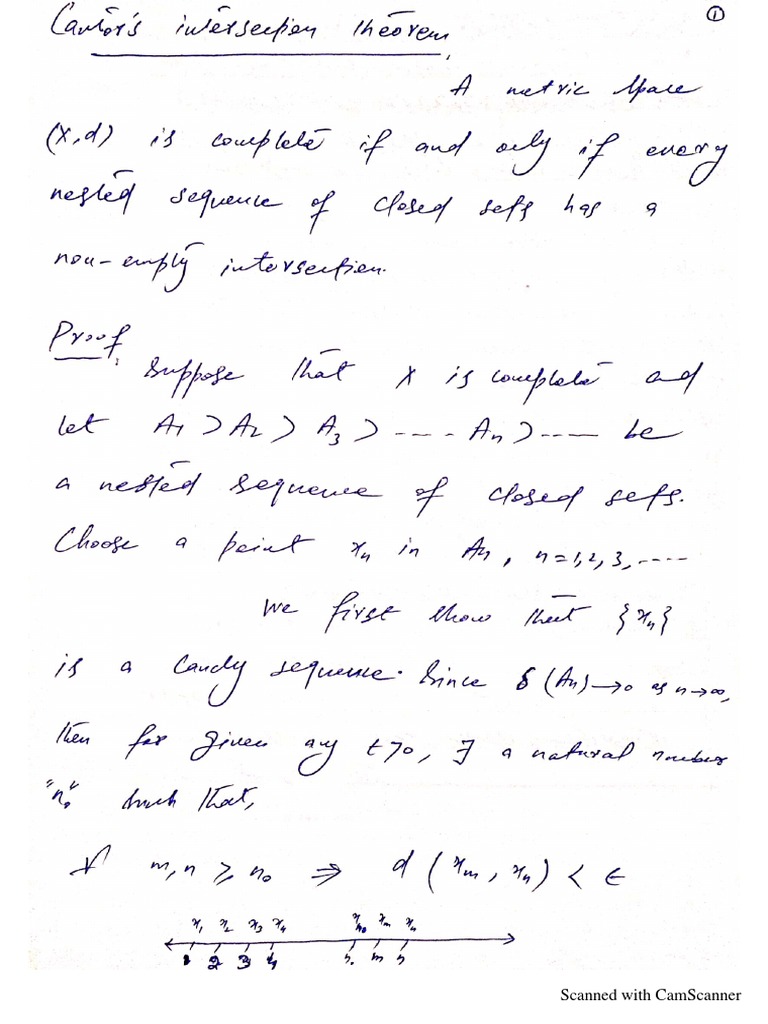 ①
Cantor's intersection theorem.
A metric space
(X,d) is complete if and only if every
nested sequence of closed sets has a
non-empty intersection.
Proof. Suppose that X is complete and
let A₁ ⊃ A₂ ⊃ A₃ ⊃ ---- Aₙ ⊃ ---- be
a nested sequence of closed sets.
Choose a point xₙ in Aₙ, n=1,2,3,----
We first show that {xₙ}
is a Caucy sequence. Since δ(Aₙ)→0 as n→∞,
then for given any ε>0, ∃ a natural number
"n₀" such that,
∀ m,n ≥ n₀ ⇒ d(xₘ, xₙ) < ∈
x₁ x₂ x₃ x₄ xₙ₀ xₘ xₙ
1 2 3 4 n₀ m n
Scanned with CamScanner